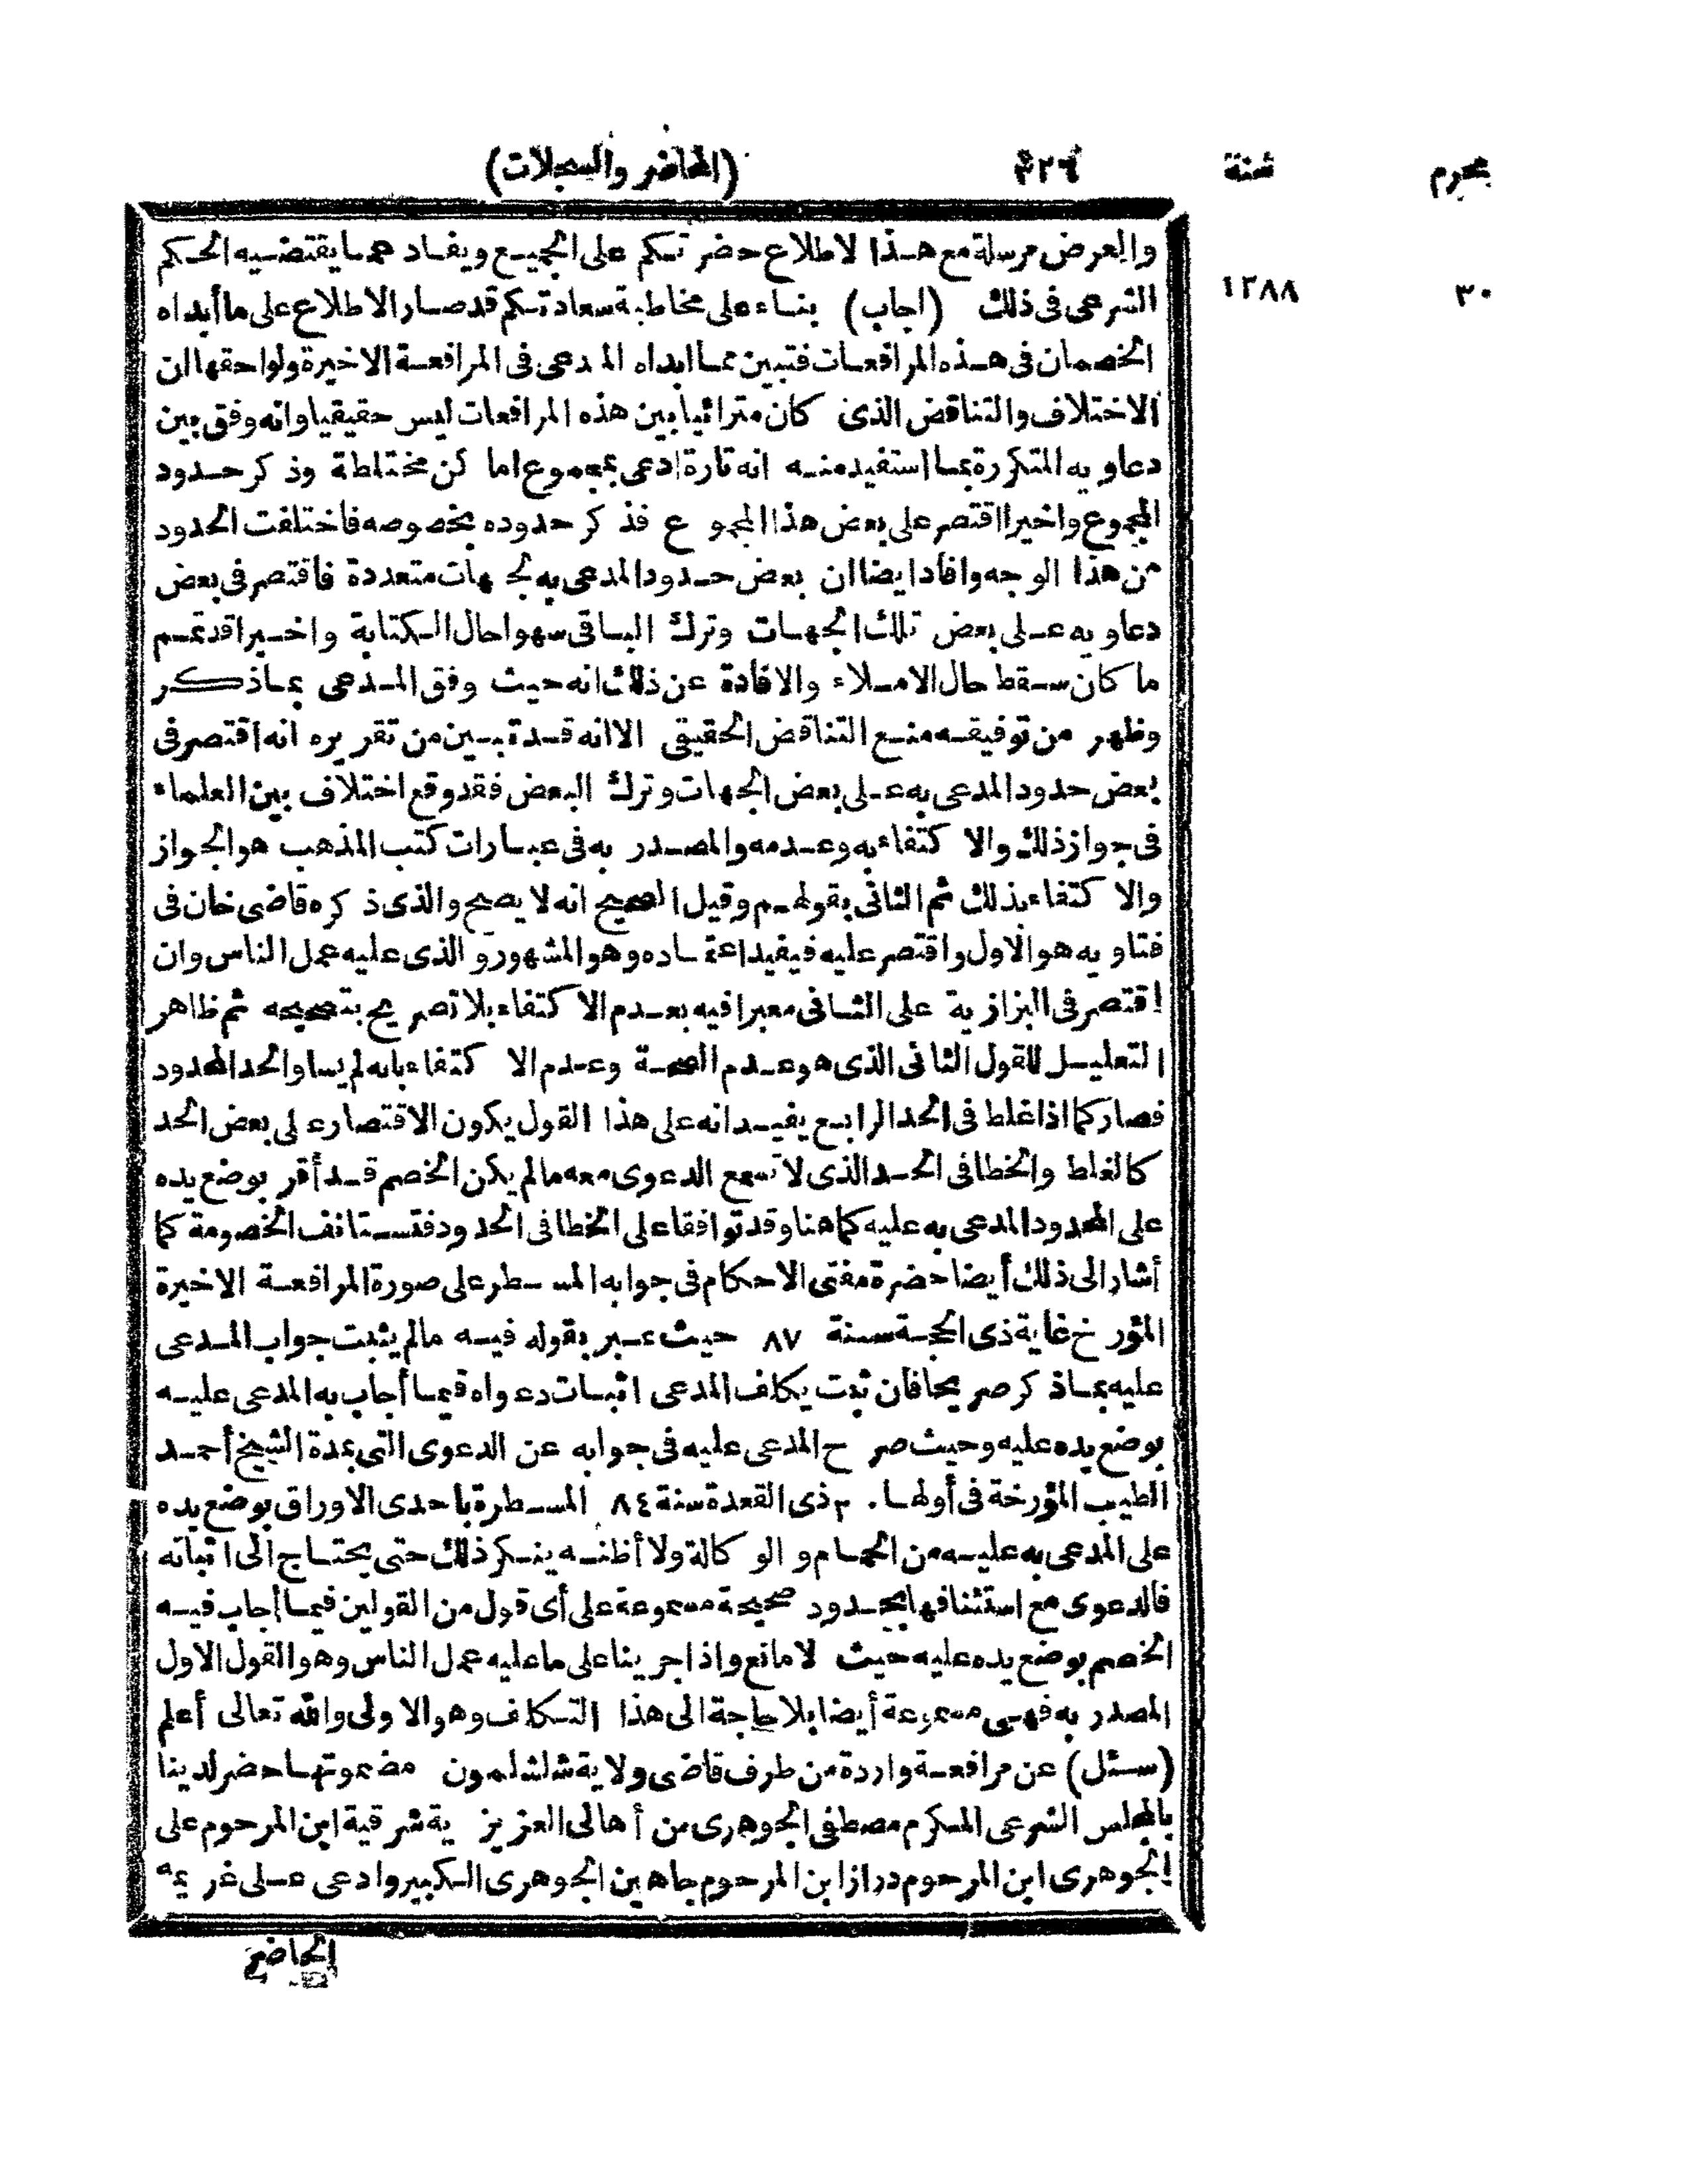 محرم سنة ٤٢٦ (المحاضر والسجلات)
٣٠ ١٢٨٨
والعرض مرسلة مع هذا لاطلاع حضرتكم على الجميع ويفاد عما يقتضيه الحكم
الشرعى فى ذلك (اجاب) بناء على مخاطبة سعادتكم قد صار الاطلاع على ما أبداه
الخصمان فى هذه المرافعات فتبين مما ابداه المدعى فى المرافعة الاخيرة ولواحقها ان
الاختلاف والتناقض الذى كان مترائيا بين هذه المرافعات ليس حقيقيا وانه وفق بين
دعاويه المتكررة بما استفيد منه انه تارة ادعى بمجموع اما كن مختلطة وذكر حدود
المجموع واخيرا اقتصر على بعض هذا المجموع فذكر حدوده بخصوصه فاختلفت الحدود
من هذا الوجه وافاد ايضا ان بعض حدود المدعى به لجهات متعددة فاقتصر فى بعض
دعاويه على بعض تلك الجهات وترك الباقى سهوا حال الكتابة واخيرا قد تمم
ما كان سقط حال الاملاء والافادة عن ذلك انه حيث وفق المدعى بما ذكر
وظهر من توفيقه منع التناقض الحقيقى الا انه قد تبين من تقريره انه اقتصر فى
بعض حدود المدعى به على بعض الجهات وترك البعض فقد وقع اختلاف بين العلماء
فى جواز ذلك والاكتفاء به وعدمه والمصدر به فى عبارات كتب المذهب هو الجواز
والاكتفاء بذلك ثم الثانى بقولهم وقيل الصحيح انه لا يصح والذى ذكره قاضى خان فى
فتاويه هو الاول واقتصر عليه فيفيد اعتماده وهو المشهور والذى عليه عمل الناس وان
اقتصر فى البزازية على الثانى معبرا فيه بعدم الاكتفاء بلا تصريح بتصحيحه ثم ظاهر
التعليل للقول الثانى الذى هو عدم الصحة وعدم الاكتفاء بانه لم يساو الحد المحدود
فصار كما اذا غلط فى الحد الرابع يفيد انه على هذا القول يكون الاقتصار على بعض الحد
كالغلط والخطا فى الحد الذى لا تسمع الدعوى معه ما لم يكن الخصم قد أقر بوضع يده
على المحدود المدعى به عليه كما هنا وقد توافقا على الخطا فى الحدود فتستانف الخصومة كما
أشار الى ذلك أيضا حضرة مفتى الاحكام فى جوابه المسطر على صورة المرافعة الاخيرة
المؤرخ غاية ذى الحجة سنة ٨٧ حيث عبر بقوله فيه ما لم يثبت جواب المدعى
عليه بما ذكر صريحا فان ثبت يكلف المدعى اثبات دعواه فيما أجاب به المدعى عليه
بوضع يده عليه وحيث صرح المدعى عليه فى جوابه عن الدعوى التى بمدة الشيخ أحمد
الطيب المؤرخة فى أولها ٣٠ ذى القعدة سنة ٨٤ المسطرة باحدى الاوراق بوضع يده
على المدعى به عليه من الحمام والوكالة ولا أظنه ينكر ذلك حتى يحتاج الى اثباته
فالدعوى مع استئنافها بحدود صحيحة مسموعة على أى قول من القولين فيما أجاب فيه
الخصم بوضع يده عليه حيث لا مانع واذا جرينا على ما عليه عمل الناس وهو القول الاول
المصدر به فهى مسموعة أيضا بلا حاجة الى هذا التكلف وهو الاولى والله تعالى أعلم
(سئل) عن مرافعة واردة من طرف قاضى ولاية شلشلمون مضمونها حضر لدينا
بالمجلس الشرعى المكرم مصطفى الجوهرى من أهالى العزيزية شرقية ابن المرحوم على
الجوهرى ابن المرحوم دراز ابن المرحوم جاهين الجوهرى الكبير وادعى على غريمه
الحاضر